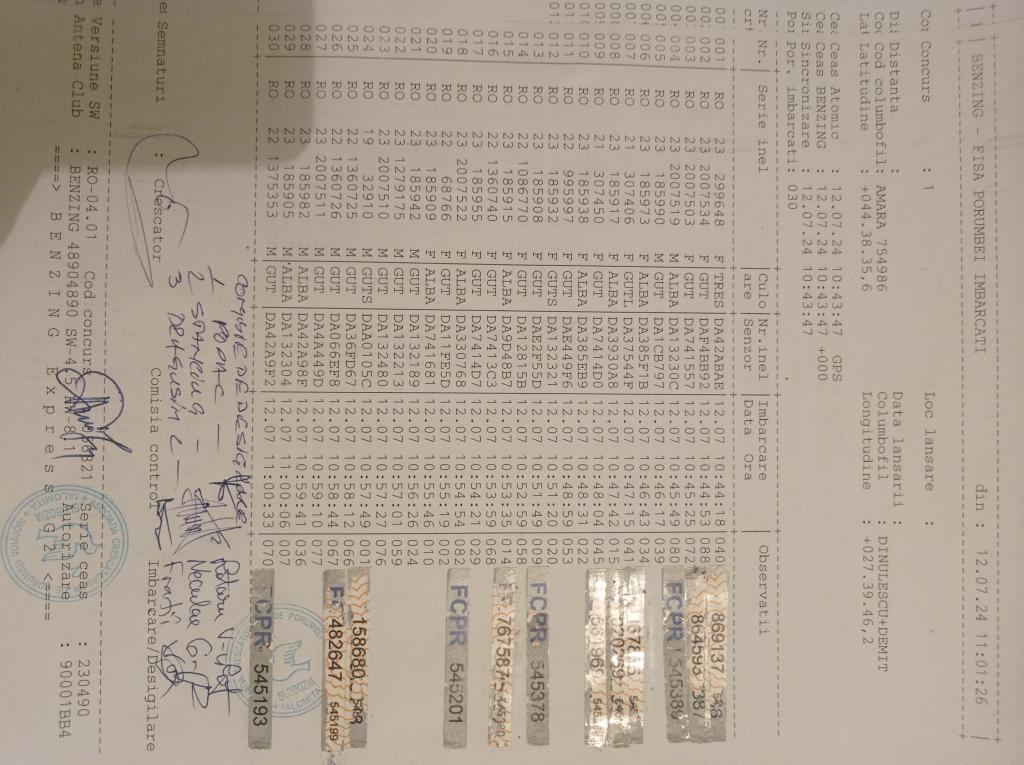 BENZING - FISA PORUMBEI IMBARCATI din : 12.07.24 11:01:26
Concurs : 1 Loc lansare :
Distanta : Data lansarii :
Cod columbofil: AMARA 754986 Columbofil : DINULESCU+DEMIT
Latitudine : +044.38.35,6 Longitudine : +027.39.46,2
Ceas Atomic : 12.07.24 10:43:47 GPS
Ceas BENZING : 12.07.24 10:43:47 +000
Sincronizare : 12.07.24 10:43:47
Por. imbarcati: 030
Nr. Serie inel Culo Nr.inel Imbarcare Observatii
crt are Senzor Data Ora
001 RO 23 299648 F TRES DA42ABAE 12.07 10:44:18 040
002 RO 23 2007534 F GUT DAF4BB92 12.07 10:44:53 088
003 RO 23 2007503 F GUT DA741557 12.07 10:45:25 072
004 RO 23 2007519 M ALBA DA13220C 12.07 10:45:49 080
005 RO 23 185990 M GUT DA1CB797 12.07 10:46:17 039
006 RO 23 185973 F ALBA DA385F1B 12.07 10:46:43 034
007 RO 21 377406 F GUTL DA37544F 12.07 10:47:15 041
008 RO 23 185917 F ALBA DA3930A8 12.07 10:47:42 015
009 RO 21 377450 F GUT DA7414D0 12.07 10:48:04 045
010 RO 23 185938 F ALBA DA385EB9 12.07 10:48:31 022
011 RO 22 995997 F GUT DAE449F6 12.07 10:48:59 053
012 RO 23 185932 F GUTS DA132321 12.07 10:51:20 020
013 RO 23 185908 F GUT DAE2F55D 12.07 10:51:49 009 FCPR 545378
014 RO 22 1086770 F GUT DA12815B 12.07 10:52:59 058
015 RO 23 185915 F ALBA DA9D48B7 12.07 10:53:35 014
016 RO 22 1360740 F GUT DA741303 12.07 10:53:59 068
017 RO 23 185955 F GUT DA7414D7 12.07 10:54:21 029
018 RO 23 2007522 F ALBA DA330768 12.07 10:54:54 082 FCPR 545201
019 RO 22 68766 F GUT DA11FE5D 12.07 10:55:19 011
020 RO 23 185909 F ALBA DA741681 12.07 10:55:46 010
021 RO 23 185942 M GUT DA132189 12.07 10:56:26 024
022 RO 23 1279175 M GUT DA132213 12.07 10:57:01 059
023 RO 23 2007510 M GUT DA132480 12.07 10:57:25 076
024 RO 19 32910 M GUTS DAA0105C 12.07 10:57:49 001 158680
025 RO 22 1360725 M GUT 12.07 10:58:12 066
026 RO 22 1360726 M GUT DA006EF8 12.07 10:58:40 067 482647 545199
027 RO 23 2007511 M GUT DA4A449D 12.07 10:59:10 077
028 RO 23 185982 M ALBA DA42A98F 12.07 10:59:41 036
029 RO 23 185905 M ALBA DA132304 12.07 11:00:06 007
030 RO 22 1375353 M GUT DA42A9F2 12.07 11:00:33 070 FCPR 545193
1
2
3
Semnaturi : Crescator Comisia control Imbarcare/Desigilare
Versiune SW : RO-04.01 Cod concurs Serie ceas : 230490
Antena Club : BENZING 48904890 Autorizare : 90001BB4
====> B E N Z I N G E x p r e s s G 2 <====